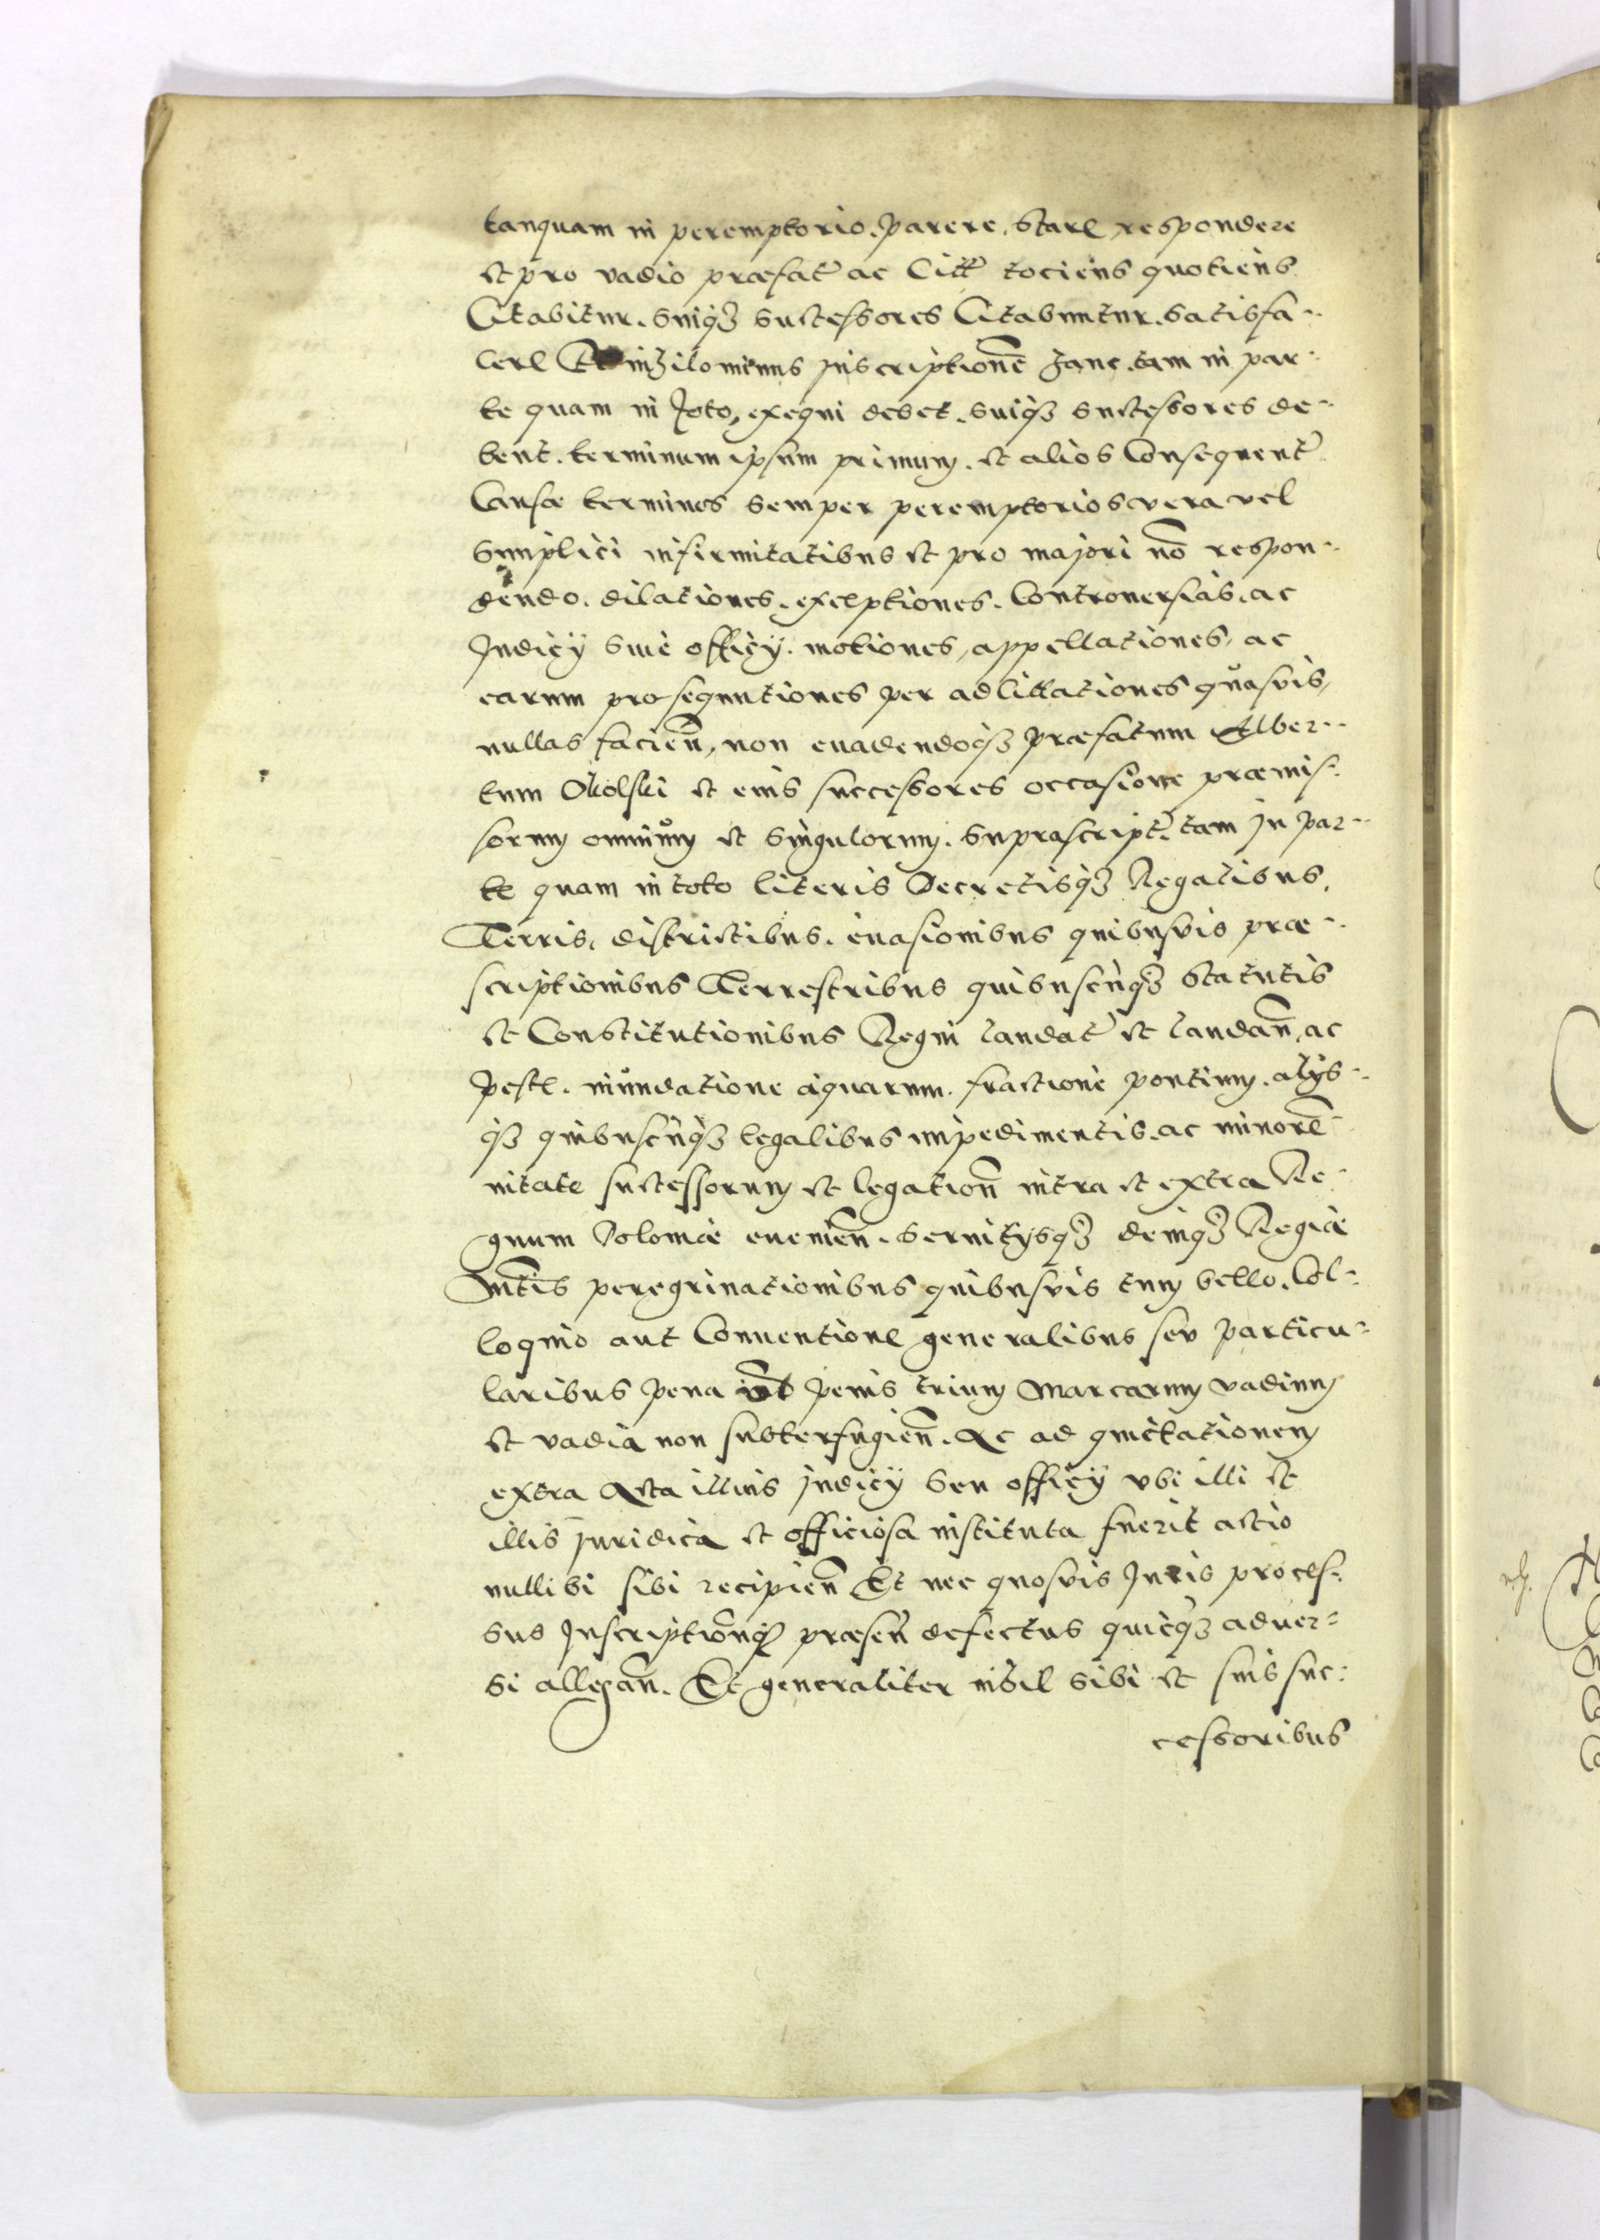 tanquam in peremptorio. parere. stare respondere
et pro vadio præfat ac Citt tociens quotiens
Citabitur. suiqz successores Citabuntur. satisfa-
cere Et nihilominus Inscriptione hanc. tam in par-
te quam in toto, exequi debet. suiqz successores de-
bent. terminum ipsum primum. et alios consequent
Causæ terminos semper peremptorios vera vel
simplici infirmitatibus et pro majori no respon-
dendo. dilationes. exceptiones. Controuersias. ac
Judicÿ siue officÿ. motiones, appellationes, ac
earum prosequutiones per ad littationes quasvis,
nullas facien, non euadendoqz præfatum Alber-
tum Okolski et eius successores occasione præmis-
sorum omnium et singulorum. suprascript. tam in par-
te quam in toto literis Decretisqz Regalibus.
Terris, districtibus. euasionibus quibusvis præ-
scriptionibus Terrestribus quibuscunqz Statutis
et Constitutionibus Regni laudat et laudan, ac
peste. inundatione aquarum. fractione pontium. alÿs-
qz quibuscunqz legalibus impedimentis. ac minore-
nitate successorum et legation intra et extra Re-
gnum Poloniæ euenien. seruitÿsqz deniqz Regiæ
Mtis peregrinationibus quibusvis tum bello. Col-
loquio aut Conuentione generalibus seu particu-
laribus pena vel penis trium Marcarum vadium
et vadia non subterfugien. Ac ad quictationem
extra Acta illius Judicÿ seu officÿ vbi illi et
illis Juridica et officiosa instituta fuerit actio
nullibi sibi recipien Et nec quosvis Juris proces-
sus Inscriptionqz præsen defectus quicqz aduer-
si allegan. Et generaliter nihil sibi et suis suc-
cessoribus